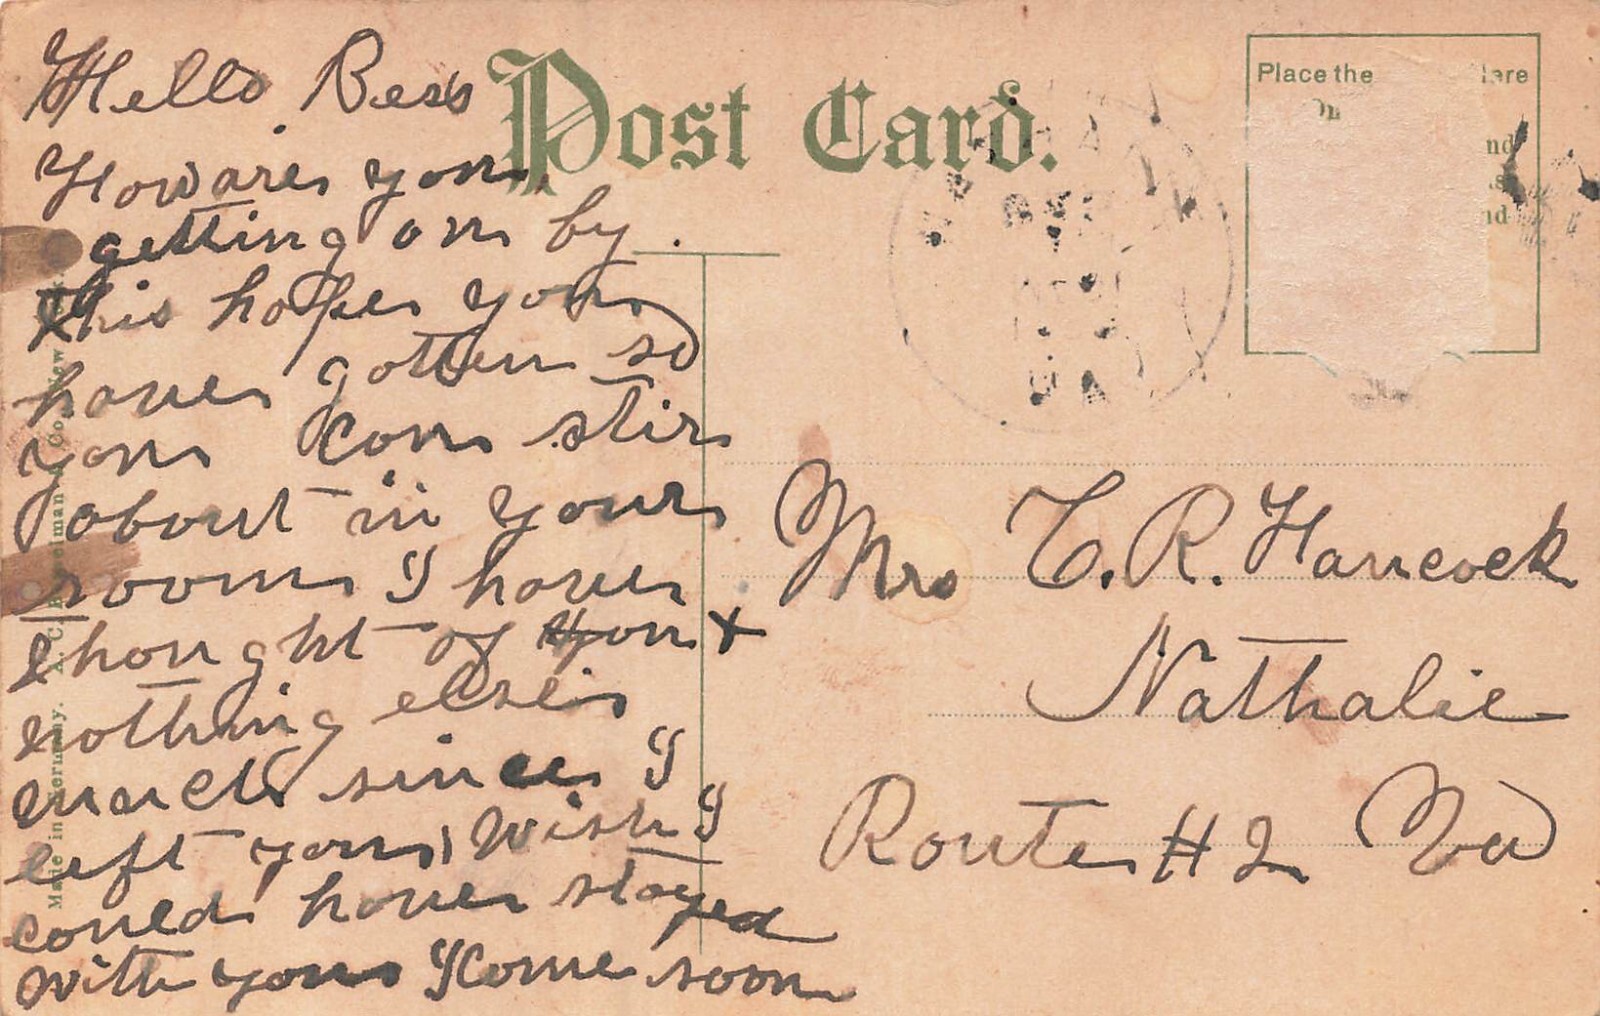 Hello Bess
How are you
getting on by
this hope you
have gotten so
you can stir
about in your
room I have
thought of you +
nothing else
much since I
left you, Wish I
could have stayed
with you I come soon
Post Card.
Place the
Here
nd
nd
Mrs C. R. Hancock
Nathalie
Route #2 Va
Made in Germany. A. C. Bosselman & Co., New